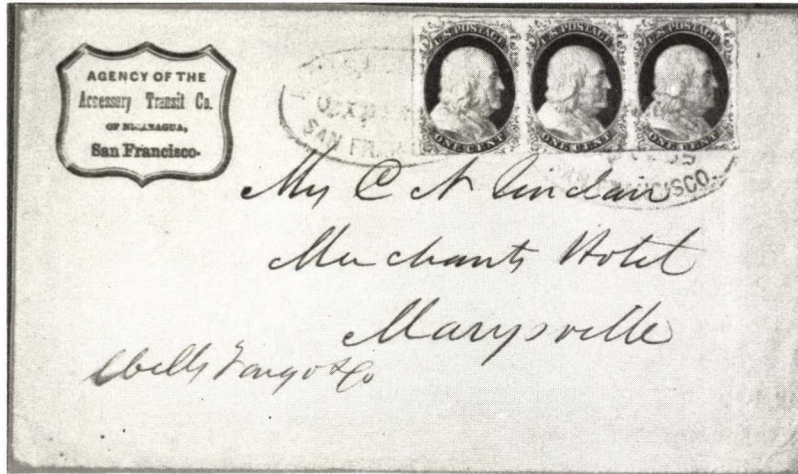 AGENCY OF THE
Accessory Transit Co.
OF NICARAGUA,
San Francisco.
U.S. POSTAGE
ONE CENT
U.S. POSTAGE
ONE CENT
U.S. POSTAGE
ONE CENT
EXPRESS
SAN FRANCISCO
SAN FRANCISCO
C N Sinclair
Merchants Hotel
Marysville
Wells Fargo & Co